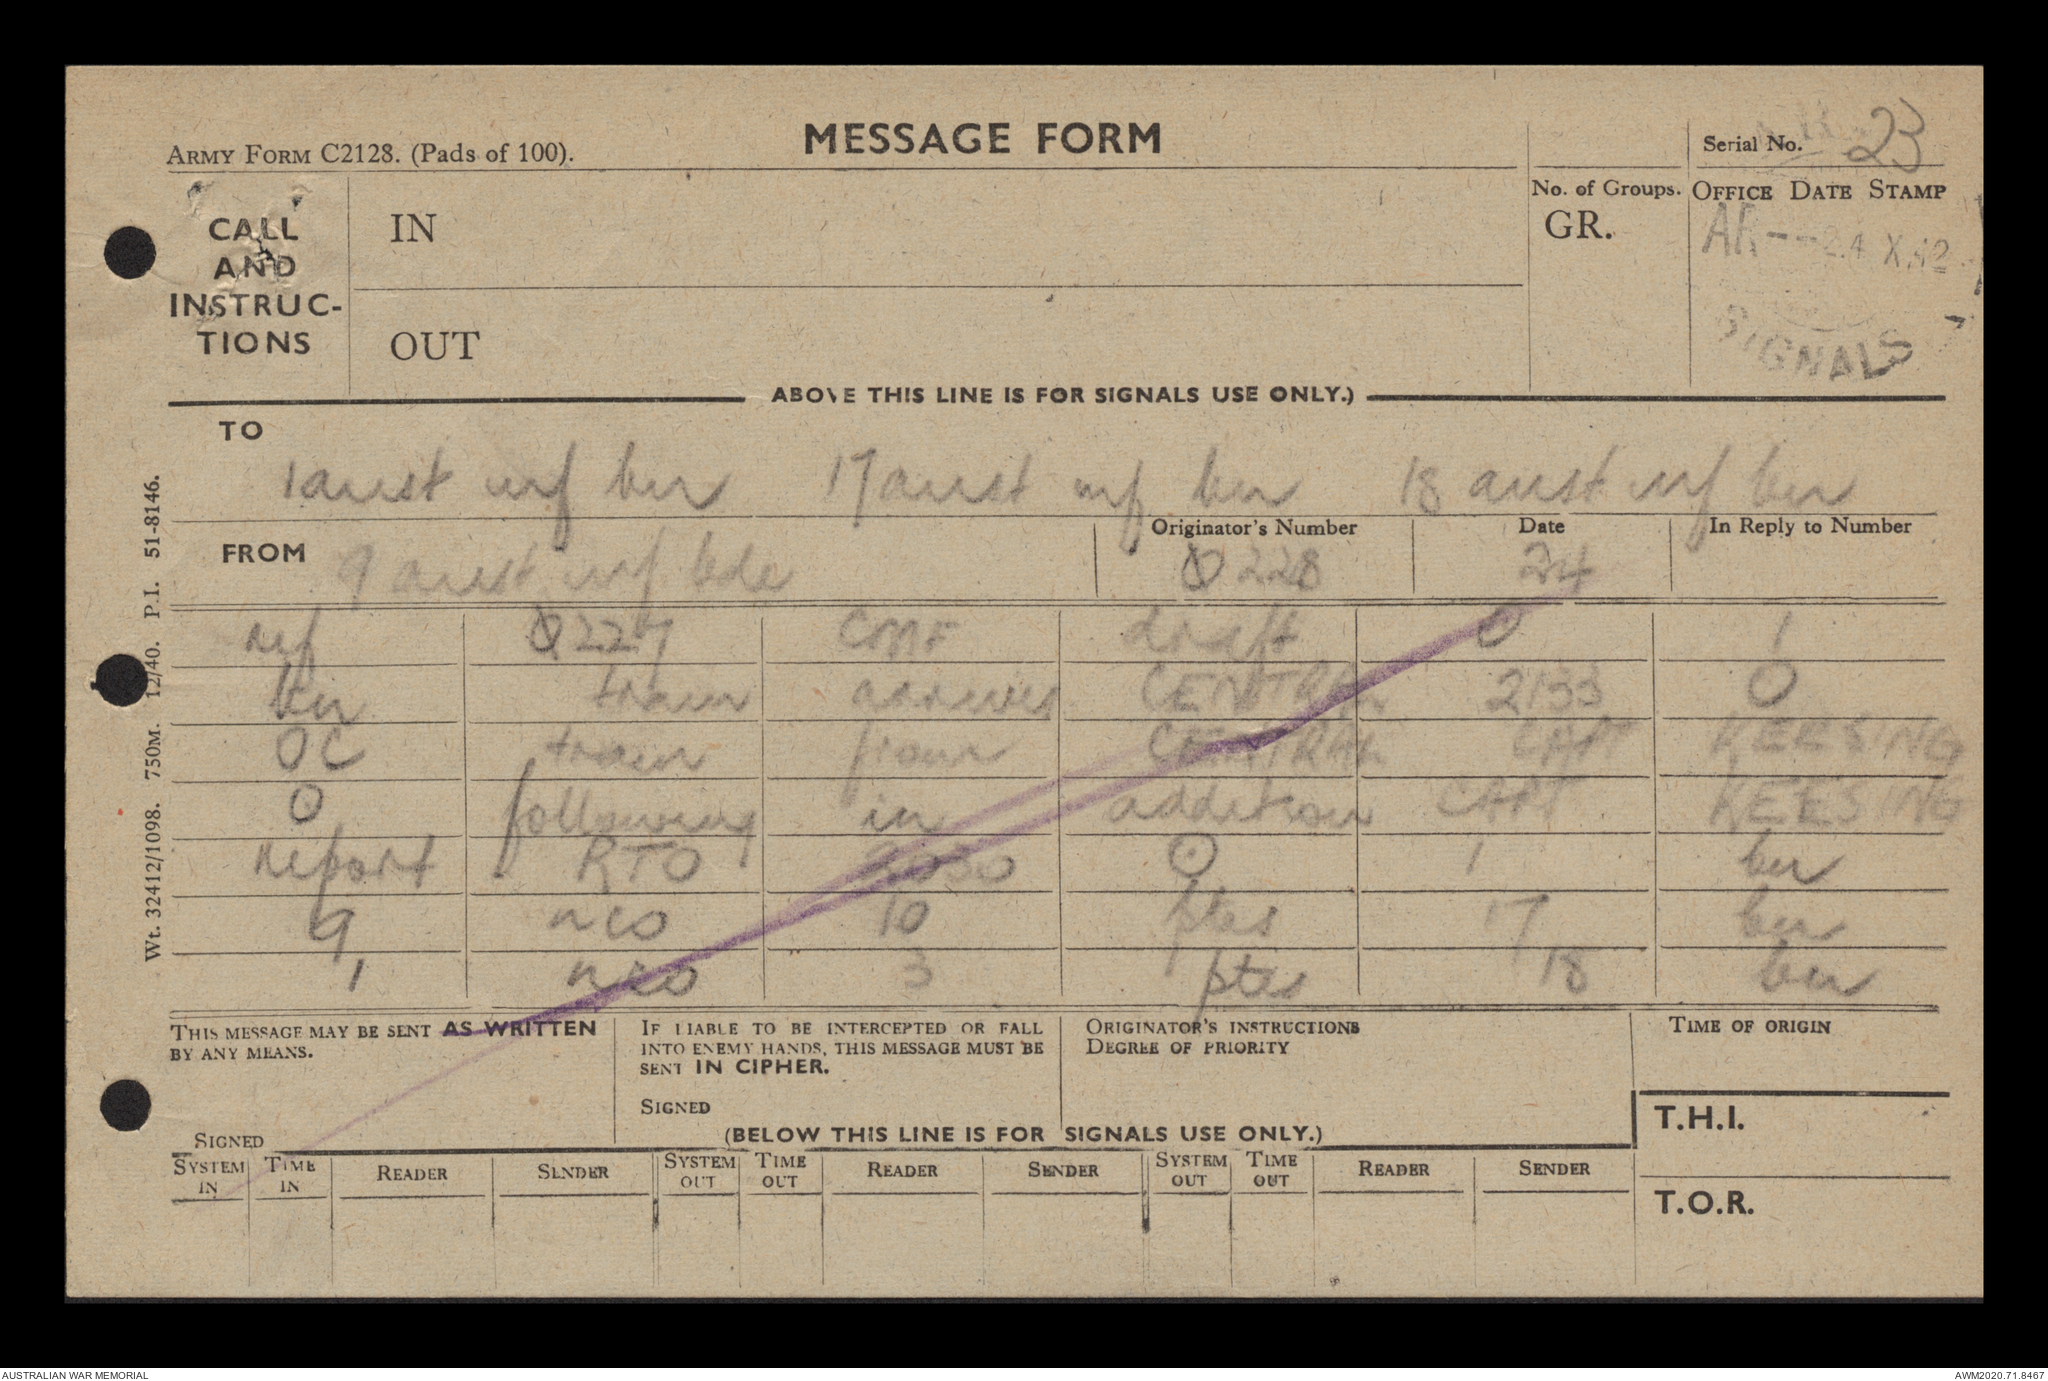 MESSAGE FORM
ARMY FORM C2128. (Pads of 100).
Serial No. 23
CALL AND INSTRUC-TIONS
IN
OUT
No. of Groups.
GR.
OFFICE DATE STAMP
24 X 42
SIGNALS
ABOVE THIS LINE IS FOR SIGNALS USE ONLY.)
TO
1 aust inf bn 17 aust inf bn 18 aust inf bn
FROM 9 aust inf bde
Originator's Number O228
Date 24
In Reply to Number
ref O227 CMF draft O 1
bn train arrives CENTRAL 2133 O
OC train from CENTRAL CAPT KEESING
O following in addition CAPT KEESING
report RTO 2030 O 1 bn
9 nco 10 ptes 17 bn
1 nco 3 ptes 18 bn
THIS MESSAGE MAY BE SENT AS WRITTEN
BY ANY MEANS.
SIGNED
IF LIABLE TO BE INTERCEPTED OR FALL
INTO ENEMY HANDS, THIS MESSAGE MUST BE
SENT IN CIPHER.
SIGNED
ORIGINATOR'S INSTRUCTIONS
DEGREE OF PRIORITY
TIME OF ORIGIN
T.H.I.
T.O.R.
(BELOW THIS LINE IS FOR SIGNALS USE ONLY.)
SYSTEM IN TIME IN READER SENDER SYSTEM OUT TIME OUT READER SENDER SYSTEM OUT TIME OUT READER SENDER
Wt. 32412/1098. 750M. 12/40. P.I. 51-8146.
AUSTRALIAN WAR MEMORIAL
AWM2020.71.8467